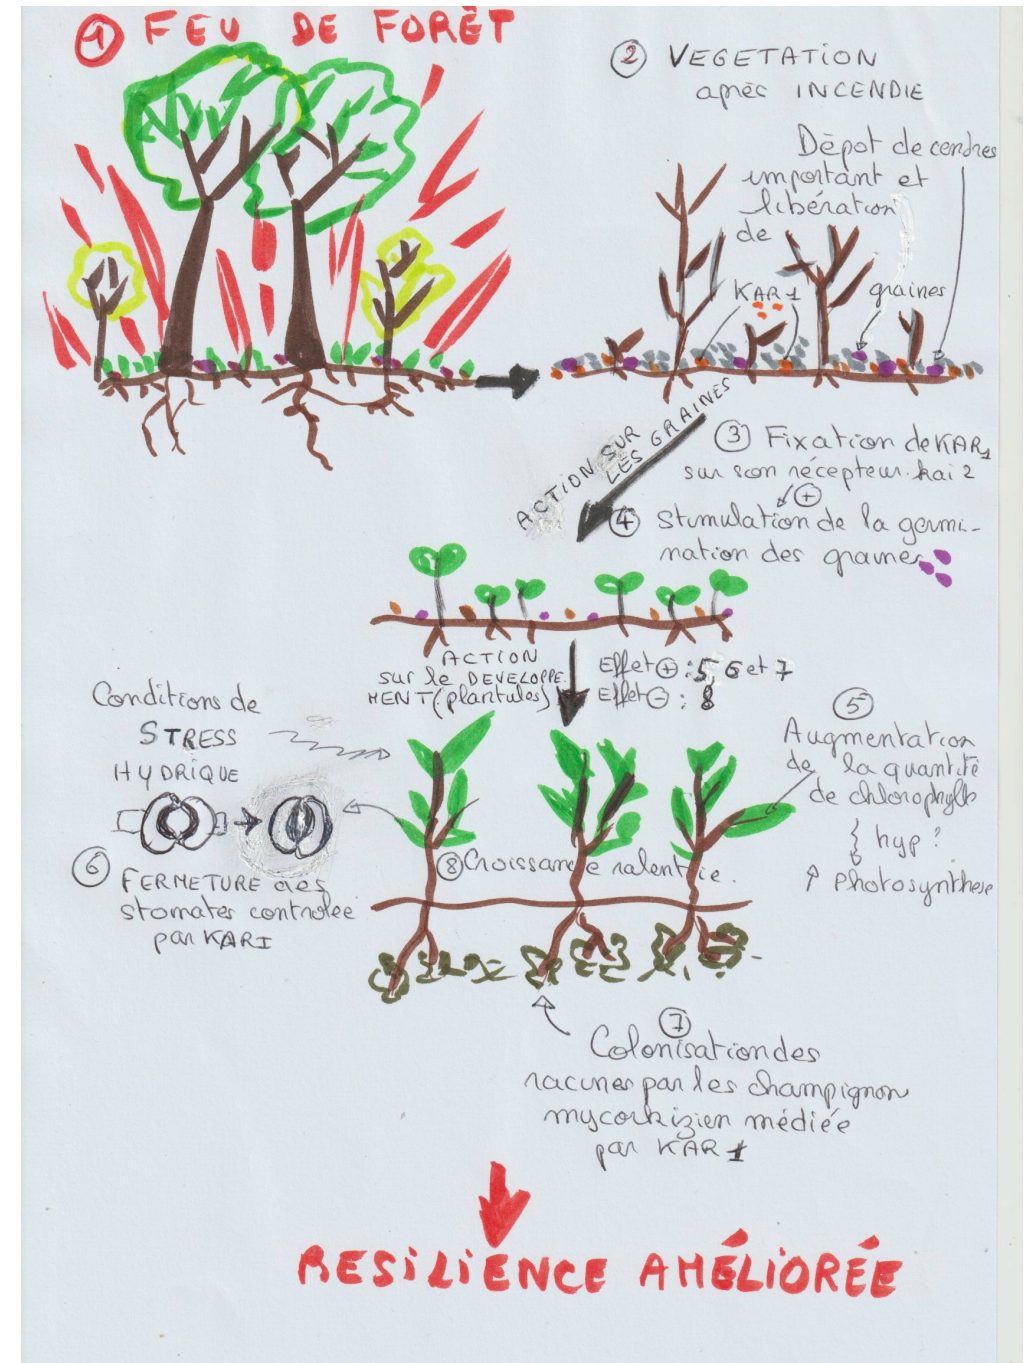 1 FEU DE FORÊT
2 VEGETATION
après INCENDIE
Dépot de cendres
important et
libération
de
KAR1
graines
ACTION SUR
LES GRAINES
3 Fixation de KAR1
sur son récepteur kai 2
+
4 Stimulation de la germi-
nation des graines
ACTION
sur le DEVELOPPE-
MENT (plantules)
Effet + : 5, 6 et 7
Effet - : 8
Conditions de
STRESS
HYDRIQUE
5
Augmentation
de la quantité
de chlorophylle
hyp ?
↑ Photosynthèse
6 FERMETURE des
stomates controlée
par KAR1
8 Croissance ralentie.
7
Colonisation des
racines par les champignon
mycorhizien médiée
par KAR 1
RESILIENCE AMÉLIORÉE